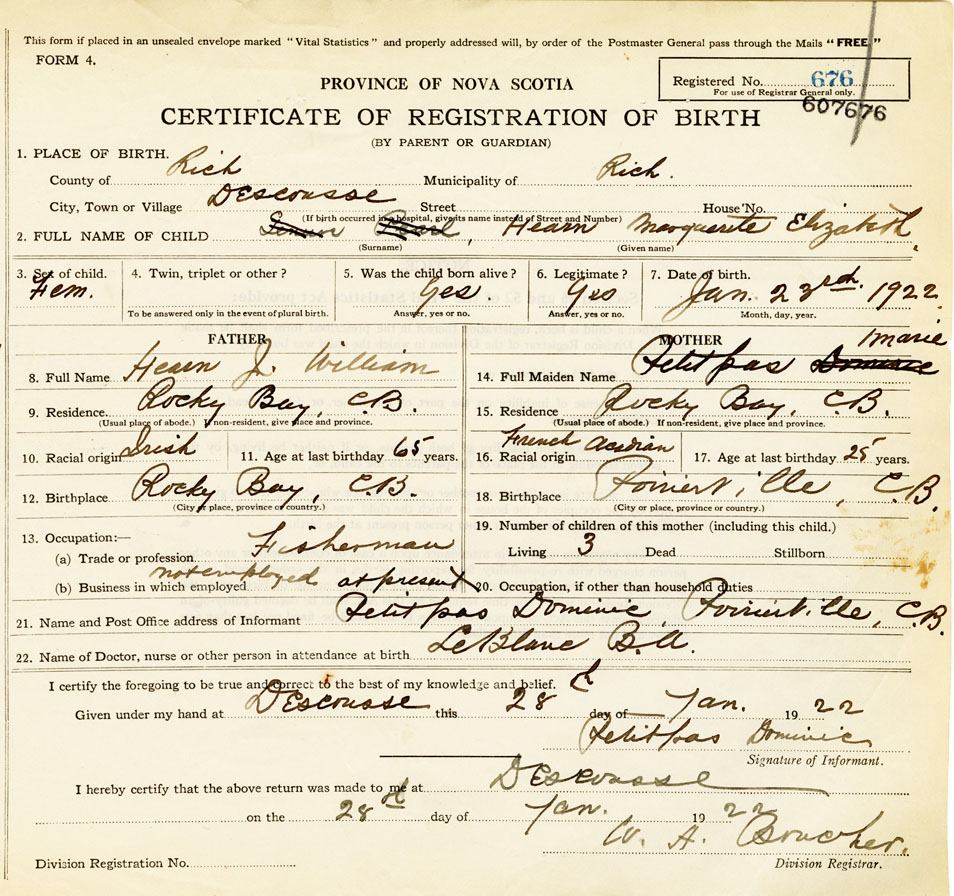 This form if placed in an unsealed envelope marked "Vital Statistics" and properly addressed will, by order of the Postmaster General pass through the Mails "FREE."
FORM 4.
Registered No. 676
For use of Registrar General only.
607676
PROVINCE OF NOVA SCOTIA
CERTIFICATE OF REGISTRATION OF BIRTH
(BY PARENT OR GUARDIAN)
1. PLACE OF BIRTH.
County of Rich Municipality of Rich.
City, Town or Village DEscousse Street House No.
(If birth occurred in a hospital, give its name instead of Street and Number)
2. FULL NAME OF CHILD Pearl, Hearn Marguerite Elizabeth
(Surname) (Given name)
3. Sex of child. 4. Twin, triplet or other? 5. Was the child born alive? 6. Legitimate? 7. Date of birth.
Fem. Yes. Yes Jan. 23rd. 1922
To be answered only in the event of plural birth. Answer, yes or no. Answer, yes or no. Month, day, year.
FATHER MOTHER Marie
8. Full Name Hearn J. William 14. Full Maiden Name Petitpas Dominic
9. Residence Rocky Bay, C.B. 15. Residence Rocky Bay, C.B.
(Usual place of abode.) If non-resident, give place and province. (Usual place of abode.) If non-resident, give place and province.
10. Racial origin Irish 11. Age at last birthday 65 years. 16. Racial origin French Acadian 17. Age at last birthday 25 years.
12. Birthplace Rocky Bay, C.B. 18. Birthplace Poirierville, C.B.
(City or place, province or country.) (City or place, province or country.)
13. Occupation:— 19. Number of children of this mother (including this child.)
(a) Trade or profession Fisherman Living 3 Dead Stillborn
(b) Business in which employed not employed at present 20. Occupation, if other than household duties
21. Name and Post Office address of Informant Petitpas Dominic Poirierville, C.B.
22. Name of Doctor, nurse or other person in attendance at birth LeBlanc B.A.
I certify the foregoing to be true and correct to the best of my knowledge and belief.
Given under my hand at DEscousse this 28th day of Jan. 1922
Petitpas Dominic
Signature of Informant.
I hereby certify that the above return was made to me at DEscousse
on the 28th day of Jan. 1922
W. A. Boucher.
Division Registration No. Division Registrar.